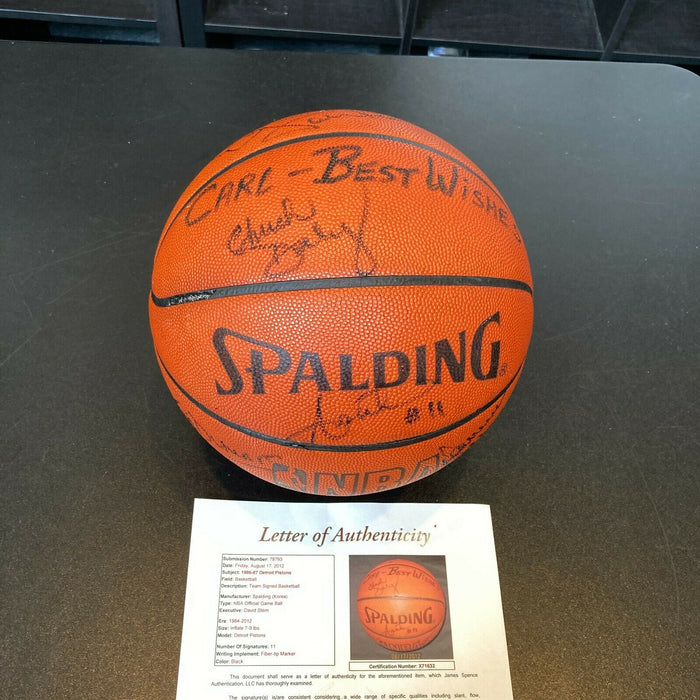 CARL - BEST WISHES
Chuck Daly
SPALDING
#11
NBA
Letter of Authenticity
Submission Number: 79793
Date: Friday, August 17, 2012
Subject: 1986-87 Detroit Pistons
Field: Basketball
Description: Team Signed Basketball
Manufacturer: Spalding (Korea)
Type: NBA Official Game Ball
Executive: David Stern
Era: 1984-2012
Size: Inflate 7-9 lbs.
Model: Detroit Pistons
Number Of Signatures: 11
Writing Implement: Fiber-tip Marker
Color: Black
BEST WISHES
SPALDING
Certification Number: X71632
This document shall serve as a letter of authenticity for the aforementioned item, which James Spence
Authentication, LLC has thoroughly examined.
The signature(s) is/are consistent considering a wide range of specific qualities including slant, flow,